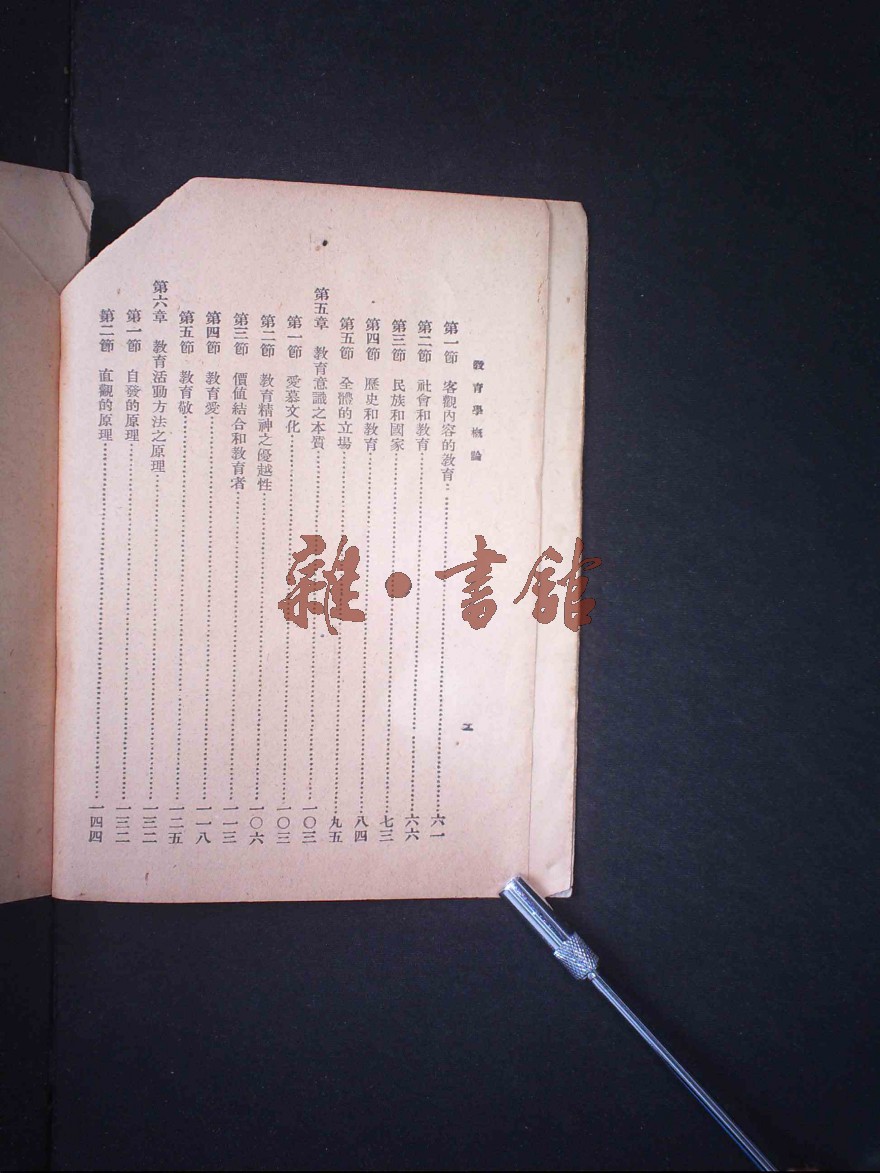 教育學概論
第一節 客觀內容的教育……六一
第二節 社會和教育……六六
第三節 民族和國家……七三
第四節 歷史和教育……八四
第五節 全體的立場……九五
第五章 教育意識之本質……一〇三
第一節 愛慕文化……一〇三
第二節 教育精神之優越性……一〇六
第三節 價値結合和教育者……一一三
第四節 教育愛……一一八
第五節 教育敬……一二五
第六章 教育活動方法之原理……一三二
第一節 自發的原理……一三二
第二節 直觀的原理……一四四
雜·書館